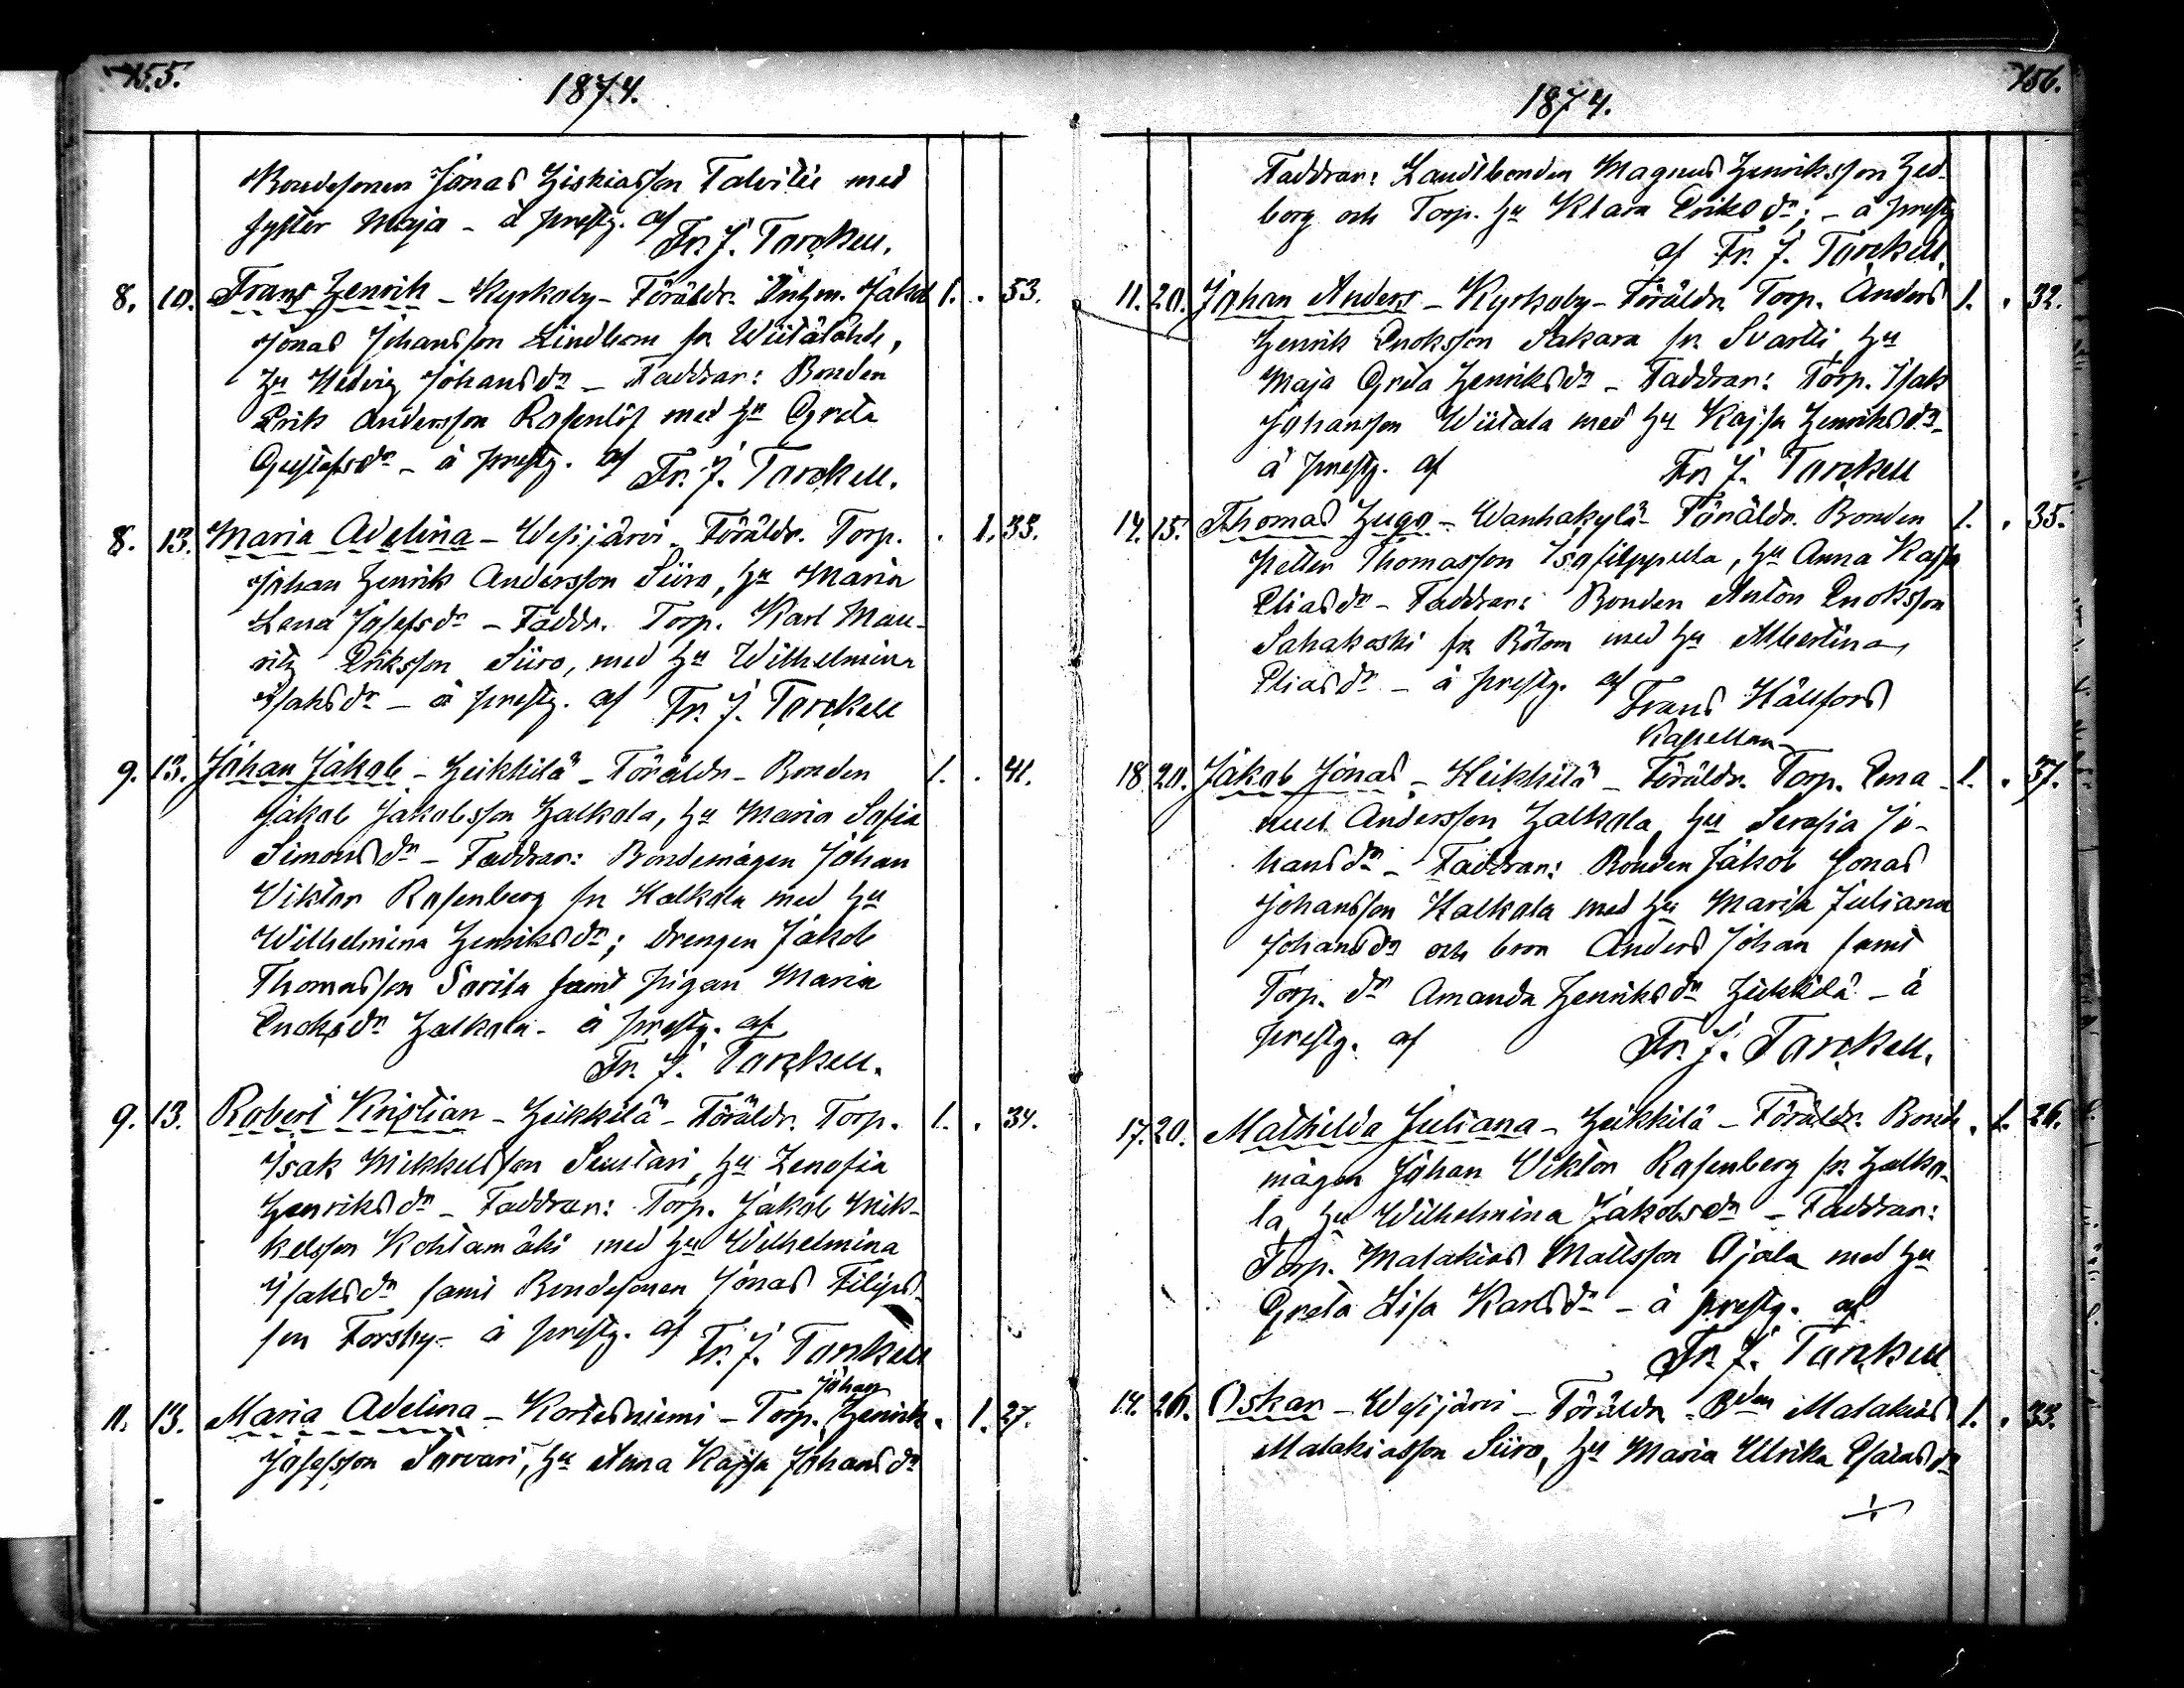 155.
1874.
Bondesonen Jonas Hiskiasson Talvitie med
syster Maja - å prestg. af
Fr. J. Tarckell.
8. 10. Frans Henrik - Kyrkoby - Föräldr. Inhm. Jakob 1. . 53.
Jonas Johansson Lindbom fr Wiitalähde,
Hu Hedvig Johansdr - Faddrar: Bonden
Erik Andersson Rosenlöf med Hu Greta
Gustafsdr - å prestg. af Fr. J. Tarckell.
8. 13. Maria Adelina - Wesijärvi - Föräldr. Torp. . 1. 33.
Johan Henrik Andersson Siiro, Hu Maria
Lena Josefsdr - Faddr. Torp. Karl Mau-
ritz Eriksson Siiro, med Hu Wilhelmina
Isaksdr - å prestg. af Fr. J. Tarckell
9. 13. Johan Jakob - Heikkilä - Föräldr - Bonden 1. . 41.
Jakob Jakobsson Halkola, Hu Maria Sofia
Simonsdr - Faddrar: Bondemågen Johan
Viktor Rosenberg fr Halkola med Hu
Wilhelmina Henriksdr; drengen Jakob
Thomasson Sorila samt pigan Maria
Enoksdr Halkola - å prestg. af
Fr. J. Tarckell.
9. 13. Robert Kristian - Heikkilä - Föräldr. Torp. 1. . 34.
Isak Mikkelsson Seustari, Hu Zenofia
Henriksdr - Faddrar: Torp. Jakob Mik-
kelsson Kohtamäki med Hu Wilhelmina
Isaksdr samt Bondesonen Jonas Filips-
son Forsby - å prestg. af Fr. J. Tarckell
Johan
11. 13. Maria Adelina - Kortesniemi - Torp. Henrik . 1. 27.
Josefsson Sorvari, Hu Anna Kajsa Johansdr
156.
1874.
Faddrar: Landtbonden Magnus Henriksson Hed-
borg och Torp. Hu Klara Eriksdr; - å prestg
af Fr. J. Tarckell.
11. 20. Johan Anders - Kyrkoby - Föräldr Torp. Anders 1. . 32.
Henrik Enoksson Sakara fr. Svartti, Hu
Maja Greta Henriksdr - Faddrar: Torp. Isak
Johansson Wiitala med Hu Kajsa Henriksdr -
å prestg. af Fr J. Tarckell
14. 15. Thomas Hugo - Wanhakylä - Föräldr. Bonden 1. . 35.
Petter Thomasson Isofilppula, Hu Anna Kajsa
Eliasdr - Faddrar: Bonden Anton Enoksson
Sahakoski fr Bötom med Hu Albertina
Eliasdr - å prestg. af Frans Hällfors
Kapellan
18 20. Jakob Jonas - Heikkilä - Föräldr. Torp. Ema - 1. . 37.
nuel Andersson Halkola, Hu Serafia Jo-
hansdr - Faddrar: Bonden Jakob Jonas
Johansson Halkola med Hu Maria Juliana
Johansdr och bror Anders Johan samt
Torp. dr Amanda Henriksdr Heikkilä - å
prestg. af Fr. J. Tarckell.
17. 20. Mathilda Juliana - Heikkilä - Föräldr. Bonde . 1. 26.
mågen Johan Viktor Rosenberg fr. Halko-
la, Hu Wilhelmina Jakobsdr - Faddrar:
Torp. Malakias Mattsson Ojala med Hu
Greta Lisa Karlsdr - å prestg. af
Fr. J. Tarckell
14. 26. Oskar - Wesijärvi - Föräldr - Bden Malakias 1. . 33.
Malakiasson Siiro, Hu Maria Ulrika Esaiasdr